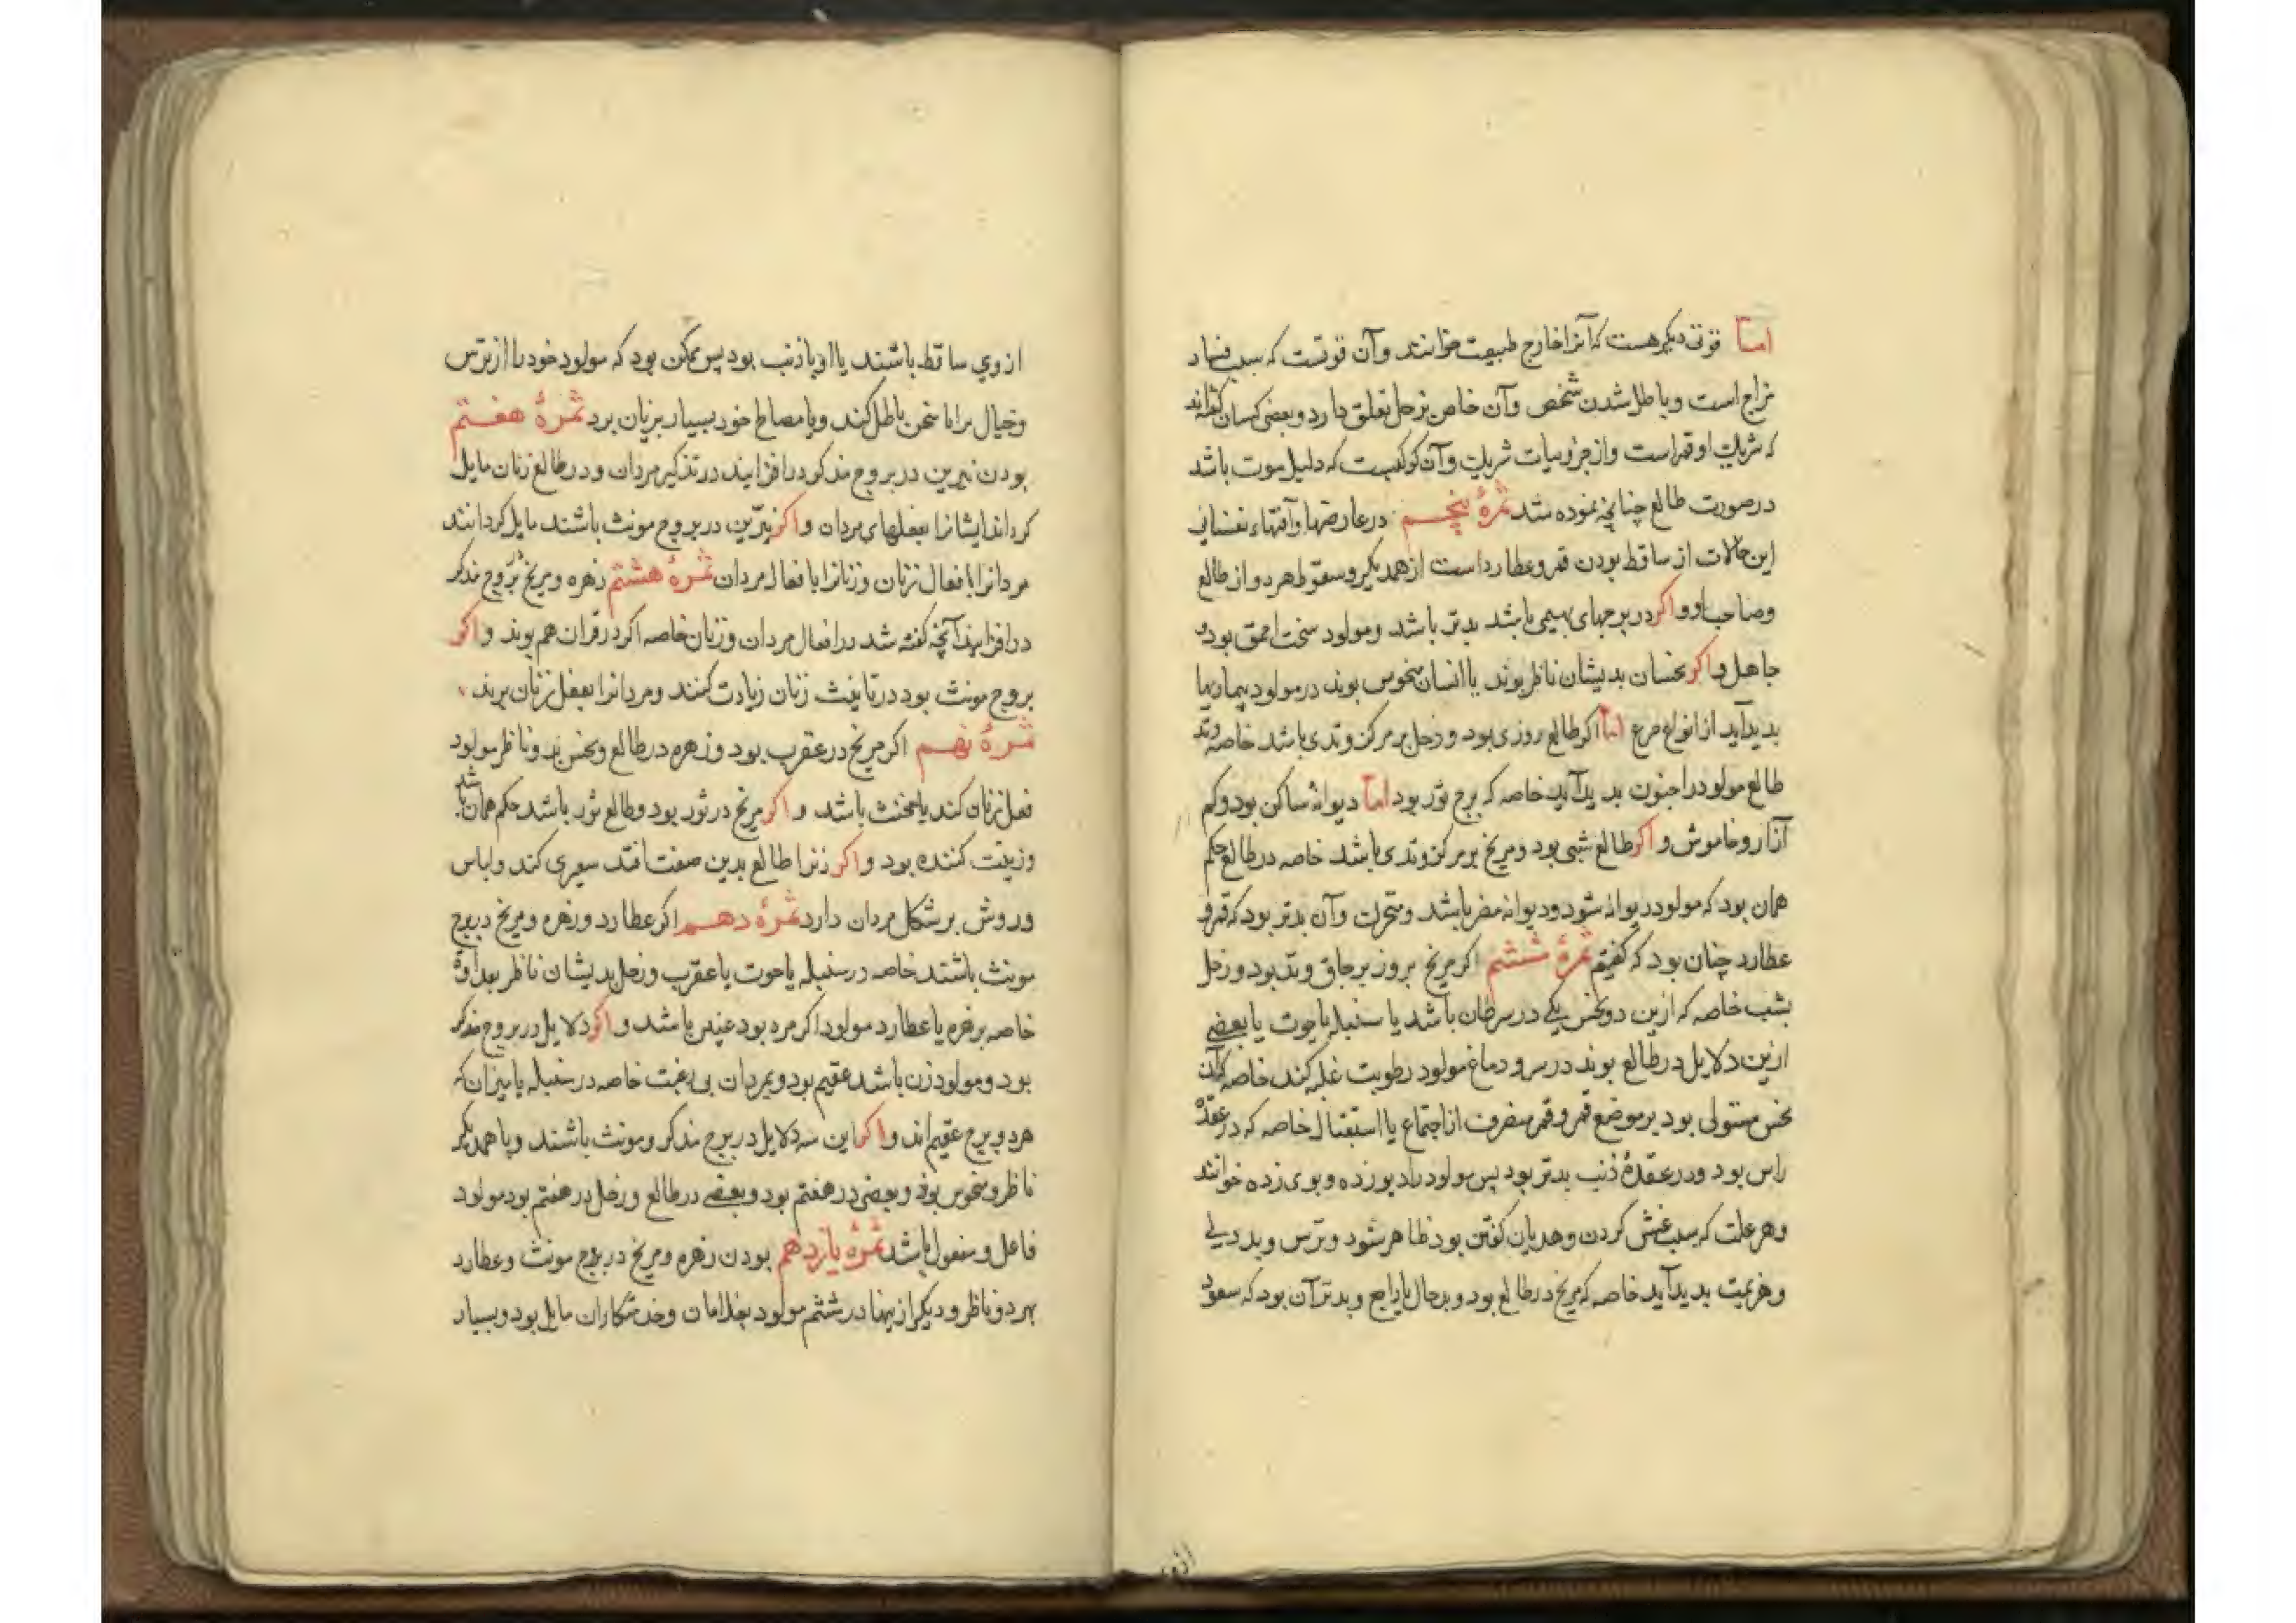 اما قوتی دیگر هست که آنرا خارج طبیعت خوانند وآن قوتست که سبب فساد
مزاج است وباطل شدن شخص وآن خاص بزحل تعلق دارد وبعضی کسان گفته اند
که شریک او قمر است واز جزویات شریک وآن کوکبیست که دلیل موت باشد
درصورت طالع چنانچه نموده شد ثمرهٔ پنجم درعارضها وآفتهاء نفسانی
این حالات از ساقط بودن قمر وعطارد است از همدیگر وسقوط هر دو از طالع
وصاحب او واکر در برجهای بهیمی باشد بدتر باشد ومولود سخت احمق بود و
جاهل واکر نحسان بدیشان ناظر بوند یا انسان منحوس بوند درمولود بیماریها
بدید آید از انواع صرع اما اکر طالع روزی بود وزحل بر مرکز وتدی باشد خاصه وتد
طالع مولود را جنون بدید آید خاصه که برج ثور بود اما دیوانهٔ ساکن بود وکم
آزار وخاموش واکر طالع شبی بود ومریخ بر مرکز وتدی باشد خاصه در طالع حکم
همان بود که مولود دیوانه شود ودیوانه مضر باشد ومتحرک وآن بدتر بود که قمر و
عطارد چنان بود که کفتیم ثمرهٔ ششم اکر مریخ بروز بر حاق وتد بود وزحل
بشب خاصه که ازین دو نحس یکی در سرطان باشد یا سنبله یا حوت یا بعضی
ازین دلایل در طالع بوند در سر ودماغ مولود رطوبت غلبه کند خاصه که آن
نحس مستولی بود بر موضع قمر وقمر منصرف از اجتماع یا استقبال خاصه که در عقدهٔ
راس بود ودر عقدهٔ ذنب بدتر بود پس مولود را دیوزده وبوی زده خوانند
وهر علت که سبب غش کردن وهذیان کفتن بود ظاهر شود وترس وبددلی
وهزیمت بدید آید خاصه که مریخ در طالع بود وبدحال یا راجع وبدتر آن بود که سعود
از وی
از وی ساقط باشند یا او با ذنب بود پس ممکن بود که مولود خود را از ترس
وخیال برابا سخن باطل کند وبا مصالح خود بسیار بزیان برد ثمرهٔ هفتم
بودن نیرین در بروج مذکور درافزایند در تذکیر مردان ودر طالع زنان مایل
کرداند ایشانرا بفعلهای مردان واکر نیّرین در بروج مونث باشند مایل کردانند
مردانرا بافعال زنان وزنانرا بافعال مردان ثمرهٔ هشتم زهره ومریخ بروج مذکر
درافزایند آنچه کفته شد در افعال مردان وزنان خاصه اکر درقران هم بوند واکر
بروج مونث بود در تانیث زنان زیادت کنند ومردانرا بفعل زنان برند
ثمرهٔ نهم اکر مریخ در عقرب بود وزهره در طالع ونحس بد وناظر مولود
فعل زنان کند یا مخنث باشد واکر مریخ در ثور بود وطالع ثور باشد حکم همان باشد
وزینت کننده بود واکر زنرا طالع بدین صفت افتد سعری کند ولباس
وروش بر شکل مردان دارد ثمرهٔ دهم اکر عطارد وزهره ومریخ در برج
مونث باشند خاصه در سنبله یا حوت یا عقرب وزحل بدیشان ناظر بعداوة
خاصه بزهره یا عطارد مولود اکر مرد بود عنین باشد واکر دلایل در بروج مذکر
بود ومولود زن باشد عقیم بود وبمردان بی رغبت خاصه در سنبله یا میزان که
هر دو برج عقیم اند واکر این سه دلایل در برج مذکر ومونث باشند وبا همدیگر
ناظر ومنحوس بوند وبعضی در هفتم بود وبعضی در طالع وزحل در هفتم بود مولود
فاعل ومفعول باشد ثمرهٔ یازدهم بودن زهره ومریخ در برج مونث وعطارد
بهر دو ناظر ودیگر ازینها در ششم مولود بغلامان وخدمتکاران مایل بود وبسیار